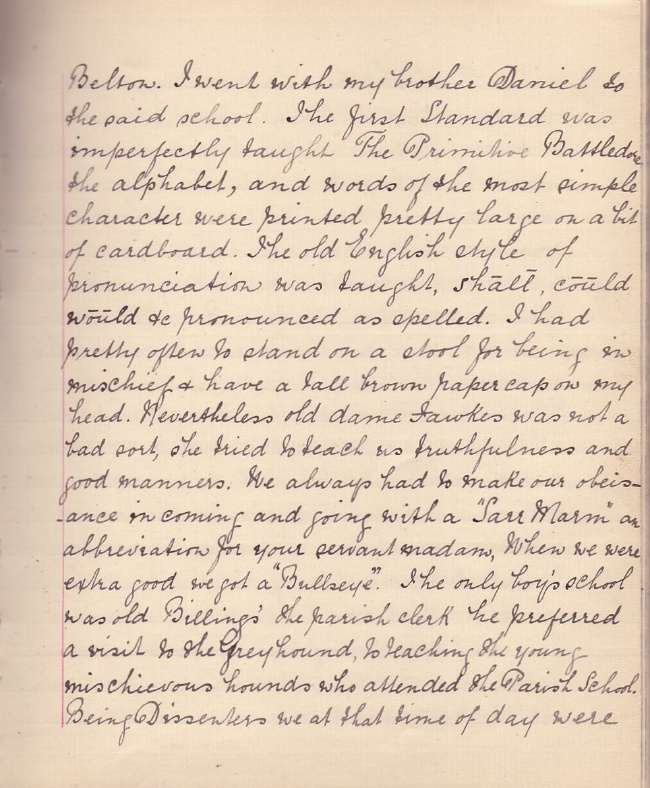 Belton. I went with my brother Daniel to
the said school. The first Standard was
imperfectly taught The Primitive Battledore
the alphabet, and words of the most simple
character were printed pretty large on a bit
of cardboard. The old English style of
pronunciation was taught, shāll, cōūld
wōūld &c pronounced as spelled. I had
pretty often to stand on a stool for being in
mischief & have a tall brown paper cap on my
head. Nevertheless old dame Fawkes was not a
bad sort, she tried to teach us truthfulness and
good manners. We always had to make our obeis-
-ance in coming and going with a "Sarr Marm" an
abbreviation for your servant madam, When we were
extra good we got a "Bullseye". The only boy's school
was old Billings' the parish clerk he preferred
a visit to the Greyhound, to teaching the young
mischievous hounds who attended the Parish School.
Being Dissenters we at that time of day were